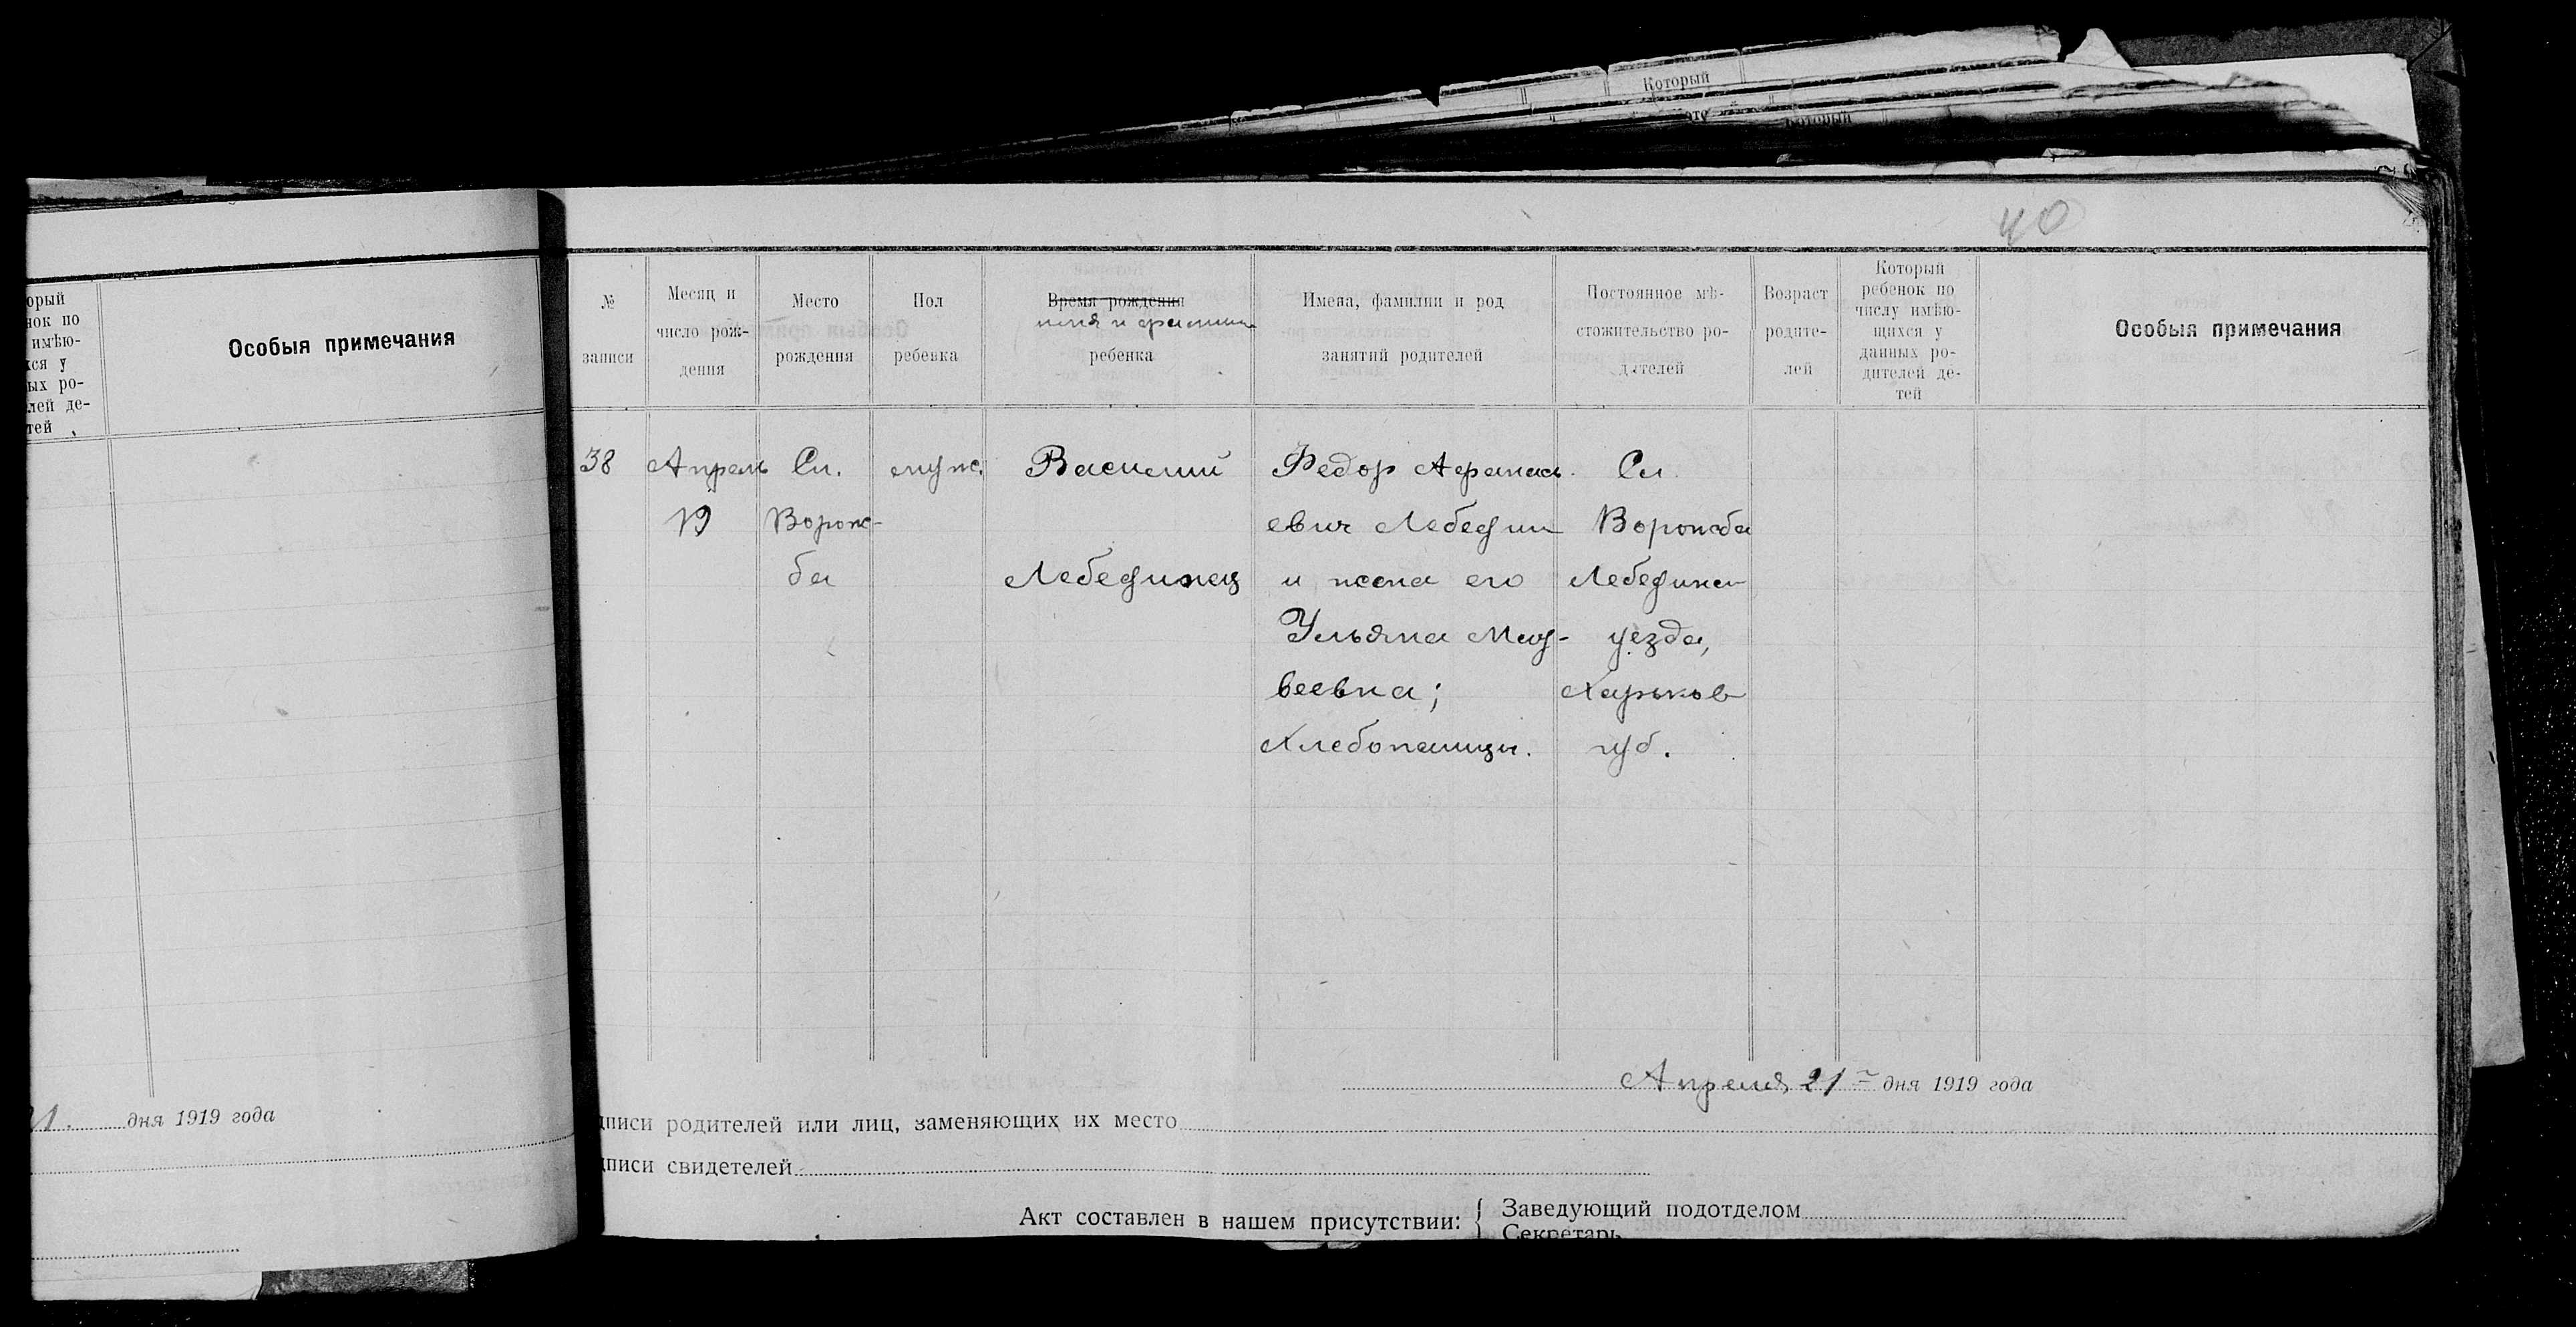 Который
Который
40
орый
нок по
имѣю-
хся у
ых ро-
лей де-
тей
Особыя примечания
21. дня 1919 года
№
записи
Месяц и
число рож-
дения
Место
рождения
Пол
ребенка
Время рождения
имя и фамилия
ребенка
Имена, фамилии и род
занятий родителей
Постоянное мѣ-
стожительство ро-
дителей
Возраст
родите-
лей
Который
ребенок по
числу имѣю-
щихся у
данных ро-
дителей де-
тей
Особыя примечания
38
Апрель
19
Сл.
Ворож-
ба
муж.
Василий
Лебединец
Федор Афанась-
евич Лебедин
и жена его
Ульяна Мат-
веевна;
Хлебопашцы.
Сл.
Ворожба
Лебединск
уезда,
Харьков
губ.
Апреля 21 дня 1919 года
дписи родителей или лиц, заменяющих их место
дписи свидетелей
Акт составлен в нашем присутствии:
Заведующий подотделом
Секретарь